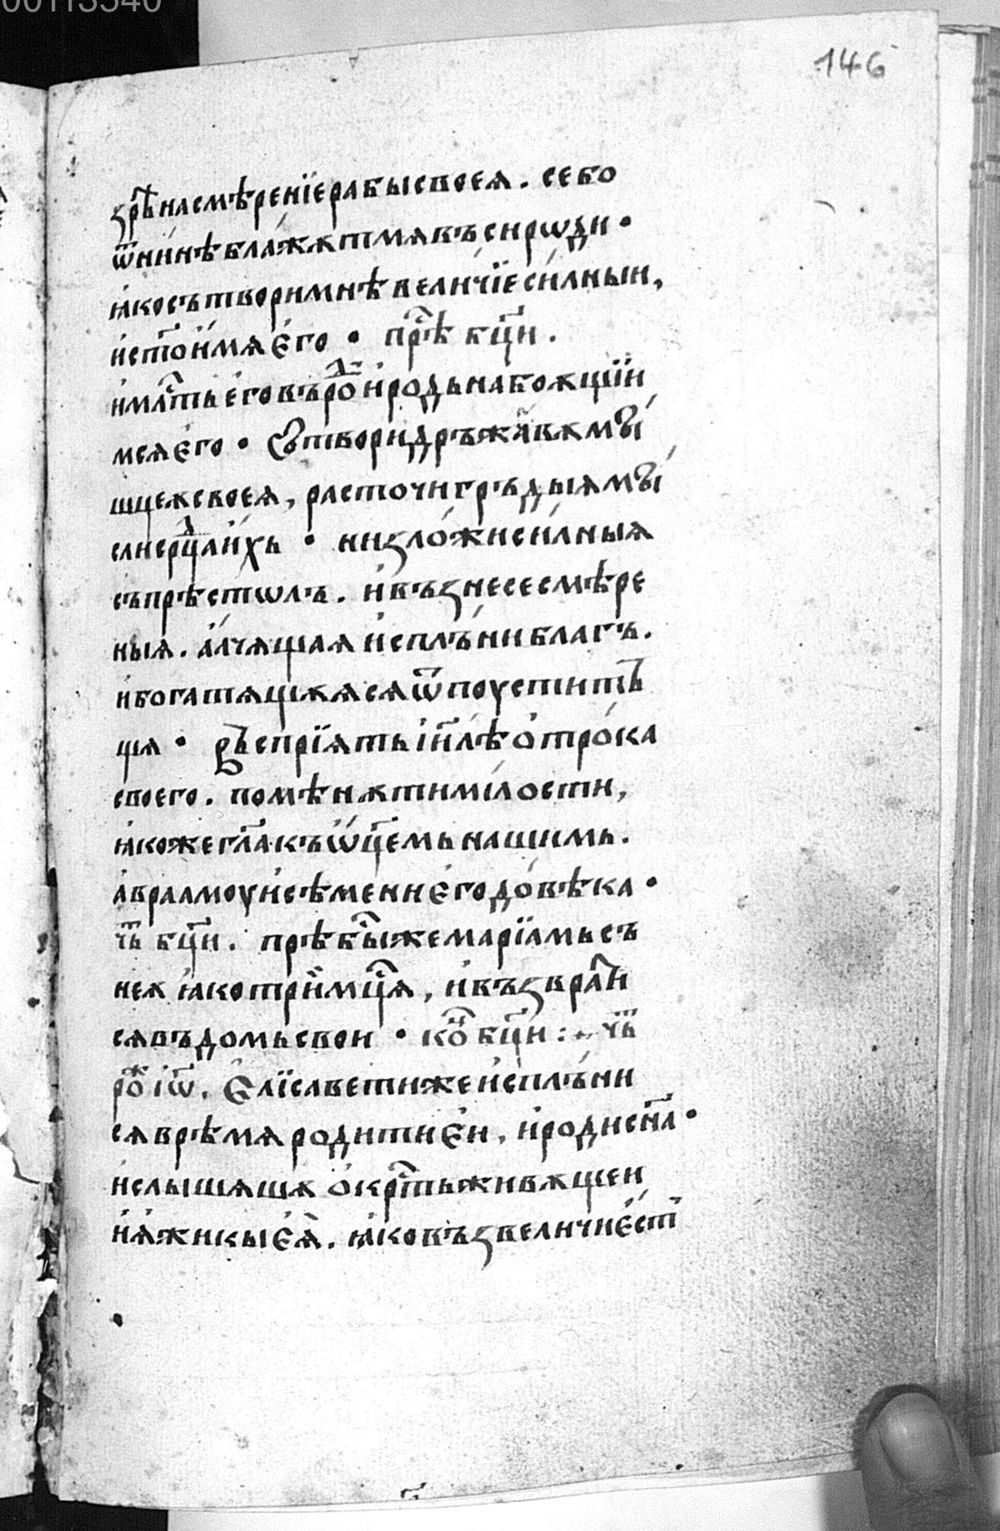 00113540
146
зрѣ на смѣренїе рабы своеѧ. се бо
ѿ нинѣ блажѫт мѧ въси рѡди·
ꙗко сътвори мнѣ величїе силныи,
и ст҃о имѧ е҆го · прѣ бц҃и.
и млⷭ҇ть е҆го въ роⷣ и родь наб оѫщїи
мсѧ е҆го · сътвори дръжавѫ мы
шцеѫ своеѧ, расточи гръдыѧ мы
слиѧ срц҃а и҆хь · низложи силныѧ
съ прѣстѡлъ. и҆ възнесе смѣре
ныѧ. а҆лчѧщаѧ исплъни благъ.
и богатѧщѫѧсѧ ѿпоусти тъ
щѧ · въспрїѧть і҆и҃лѣ ѻ҆трока
своего. помѣнѫти милости,
ꙗкоже гл҃а къ ѡ҆ц҃емь нашимь.
авраамоу и сѣмени е҆го до вѣка ·
чь бц҃и. прѣбыⷭ҇ же марїамь съ
неѫ ꙗко три мцⷭ҇ѧ, и҆ възврати
сѧ въ домь свои · кѡⷩ҇ бц҃и : чь
роⷤ іѡ҃. Е҆лїсавети же и҆сплъни
сѧ врѣмѧ родити е҆и, и҆ роди сн҃а ·
и слышѧшѧ ѻ҆крⷭ҇ть живѫщеи
и ѫжикы е҆ѧ. ꙗко възвеличи е҆ст